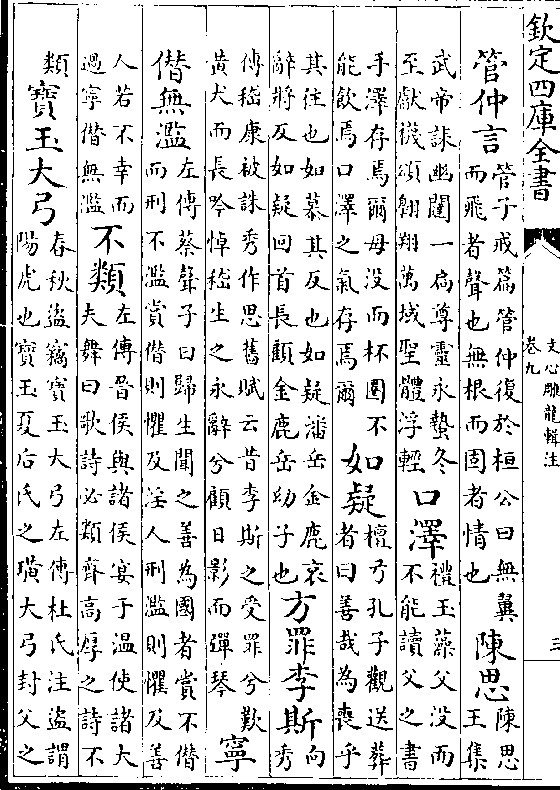 欽定四庫全書
文心雕龍輯注
卷九
三
管仲言
管子戒篇管仲復於桓公曰無翼
而飛者聲也無根而固者情也
陳思
陳思
王集
武帝誄幽闥一扃尊靈永蟄冬
至獻襪頌翱翔萬域聖體浮輕
口澤
禮玉藻父没而
不能讀父之書
手澤存焉爾母没而杯圈不
能飲焉口澤之氣存焉爾
如疑
檀弓孔子觀送葬
者曰善哉為喪乎
其往也如慕其反也如疑潘岳金鹿哀
辭將反如疑回首長顧金鹿岳幼子也
方罪李斯
向
秀
傳嵇康被誅秀作思舊賦云昔李斯之受罪兮歎
黄犬而長吟悼嵇生之永辭兮顧日影而彈琴
寧
僭無濫
左傳蔡聲子曰歸生聞之善為國者賞不僭
而刑不濫賞僭則懼及淫人刑濫則懼及善
人若不幸而
過寧僭無濫
不類
左傳晉侯與諸侯宴于溫使諸大
夫舞曰歌詩必類齊高厚之詩不
類
寶玉大弓
春秋盗竊寶玉大弓左傳杜氏注盗謂
陽虎也寶玉夏后氏之璜大弓封父之